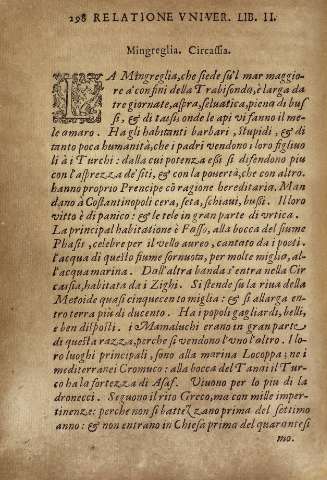 298 RELATIONE VNIVER. LIB. II.
Mingreglia. Circassia.
LA Mingreglia, che siede su'l mar maggio
re à confini della Trabisonda, è larga da
tre giornate, aspra, seluatica, piena di bus
si, & di tassi onde le api vi fanno il me-
le amaro. Ha gli habitanti barbari, stupidi, & di
tanto poca humanità, che i padri vendono i loro figliuo
li à i Turchi: dalla cui potenza essi si difendono piu
con l'asprezza de' siti, & con la pouertà, che con altro.
hanno proprio Prencipe cō ragione hereditaria. Man
dano à Costantinopoli cera, seta, schiaui, bussi. Il loro
vitto è di panico: & le tele in gran parte di vrtica.
La principal habitatione è Fasso, alla bocca del fiume
Phasis, celebre per il vello aureo, cantato da i poeti.
l'acqua di questo fiume sornuota, per molte miglia, al-
l'acqua marina. Dall'altra banda s'entra nella Cir
cassia, habitata da i Zighi. Si stende su la riua della
Meotide quasi cinquecento miglia: & si allarga en-
tro terra piu di ducento. Ha i popoli gagliardi, belli,
e ben disposti. i Mamaluchi erano in gran parte
di questa razza, perche si vendono l'vno l'altro. I lo-
ro luoghi principali, sono alla marina Locoppa; ne i
mediterranei Cromuco: alla bocca del Tanai il Tur-
co ha la fortezza di Asaf. Viuono per lo piu di la
dronecci. Seguono il rito Greco, ma con mille imper-
tinenze: perche non si battezzano prima del settimo
anno: & non entrano in Chiesa prima del quarantesi
mo.